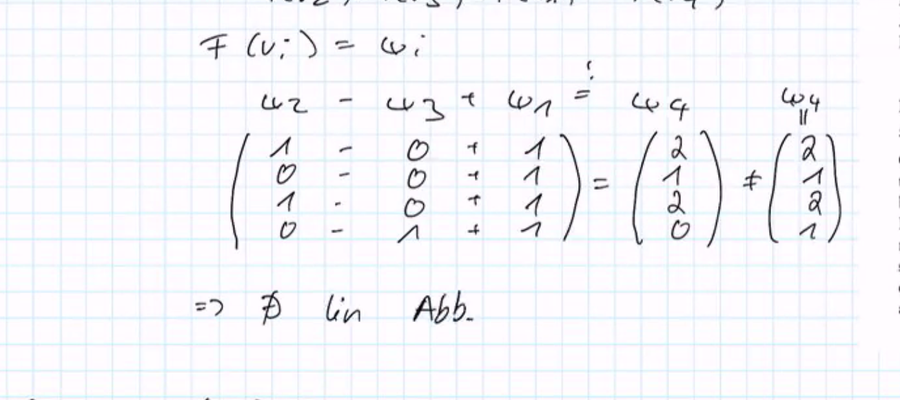 F (vi) = wi
w2 - w3 + w1 =! w4 w4
( 1 - 0 + 1 ) ( 2 ) ( 2 )
( 0 - 0 + 1 ) = ( 1 ) ≠ ( 1 )
( 1 - 0 + 1 ) ( 2 ) ( 2 )
( 0 - 1 + 1 ) ( 0 ) ( 1 )
=> ∄ lin Abb.